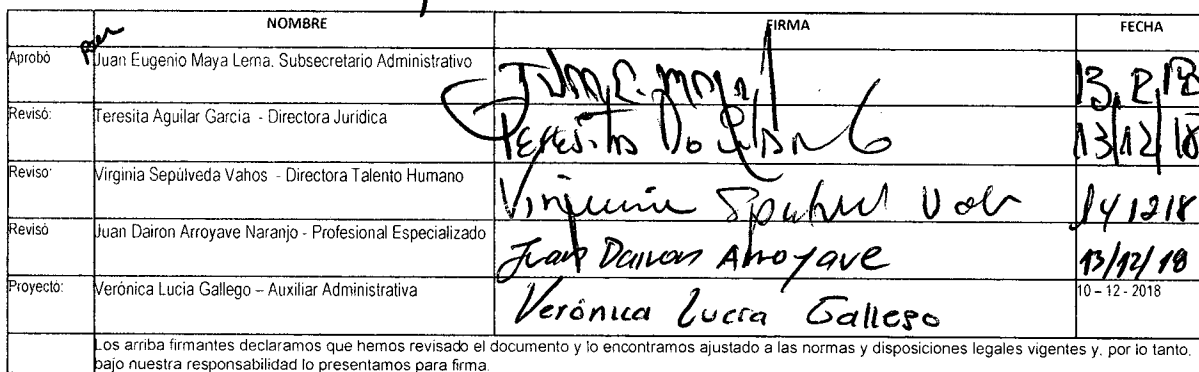 NOMBRE FIRMA FECHA
Aprobó Juan Eugenio Maya Lema. Subsecretario Administrativo
Revisó: Teresita Aguilar Garcia - Directora Jurídica 13/12/18
Reviso: Virginia Sepúlveda Vahos - Directora Talento Humano 14 12 18
Revisó Juan Dairon Arroyave Naranjo - Profesional Especializado Juan Dairon Arroyave 13/12/18
Proyectó: Verónica Lucia Gallego – Auxiliar Administrativa Verónica Lucia Gallego 10 – 12 - 2018
Los arriba firmantes declaramos que hemos revisado el documento y lo encontramos ajustado a las normas y disposiciones legales vigentes y, por lo tanto,
bajo nuestra responsabilidad lo presentamos para firma.